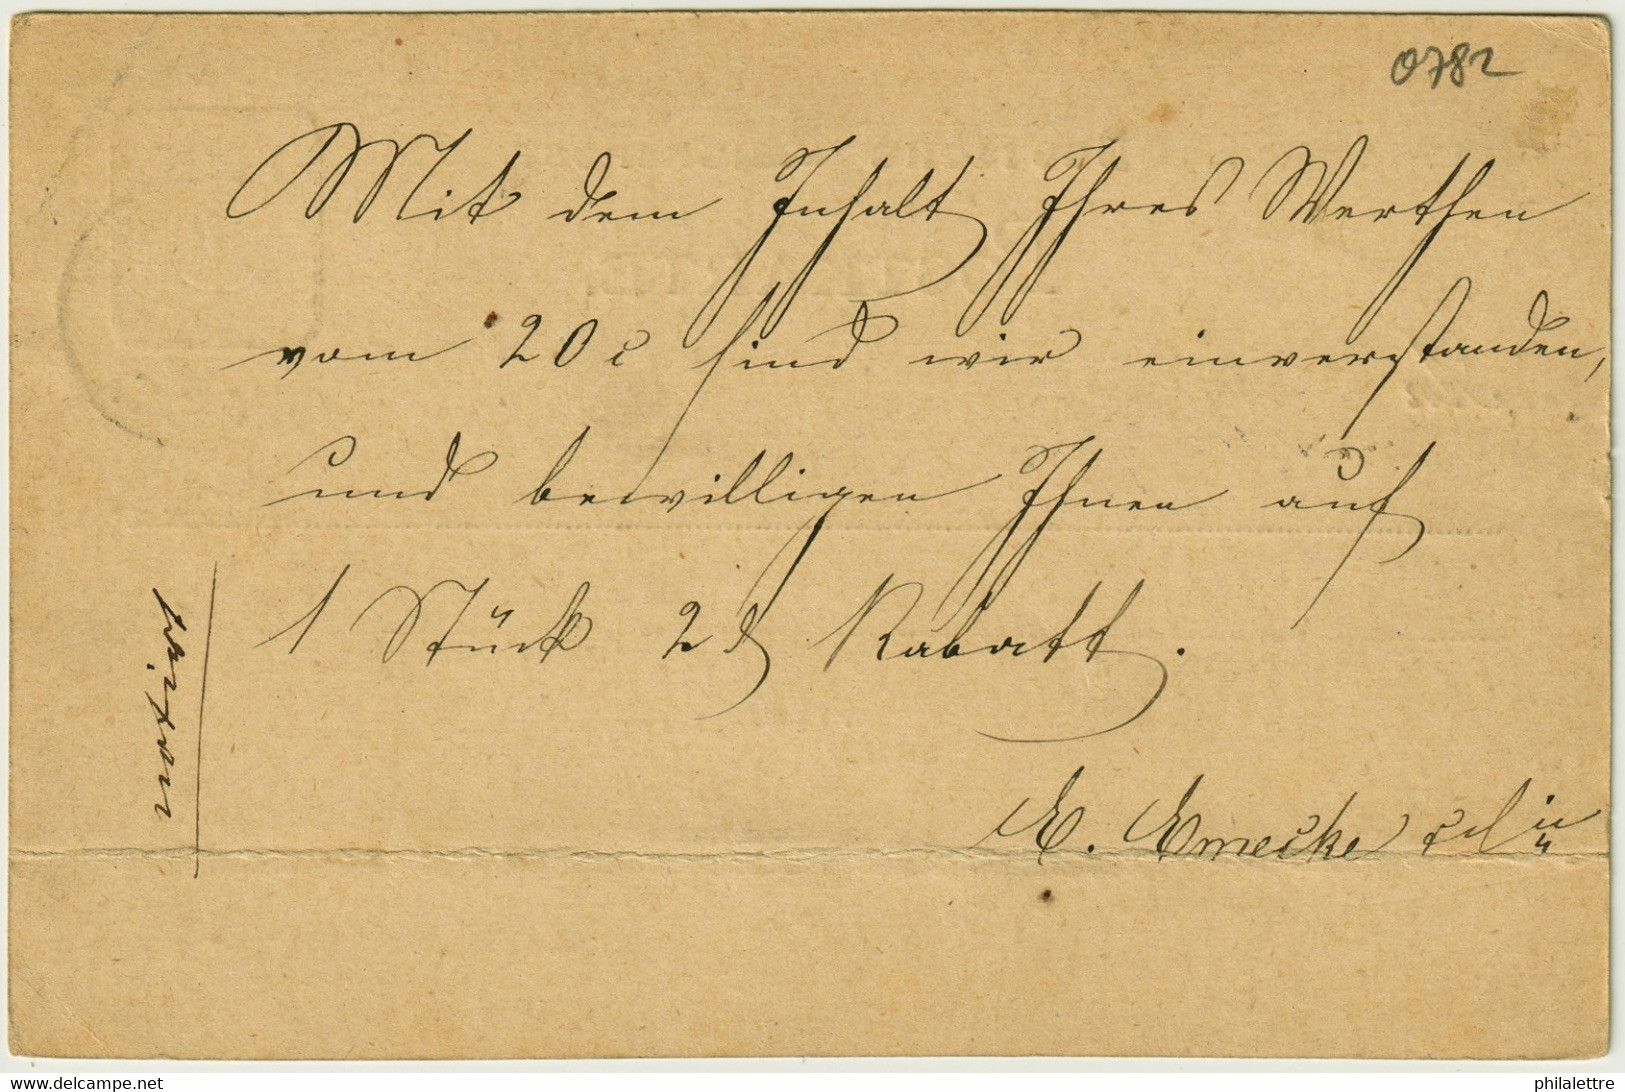 0782
Mit dem Inhalt Ihres Werthen
vom 20 c sind wir einverstanden,
und bewilligen Ihnen auf
1 Stück 2 ₰ Rabatt.
E. Emecke
notirt
delcampe.net
philalettre